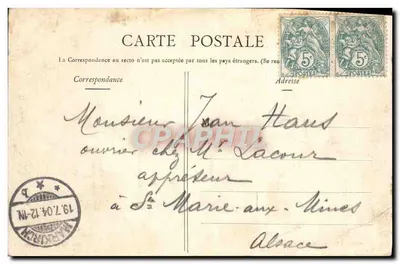 CARTE POSTALE
La Correspondance au recto n'est pas acceptée par tous les pays étrangers. (Se
Correspondance
Adresse
5 5
POSTES
Monsieur Jean Haus
CPAPHIL
ouvrier chez Mr Lacour
appréteur
à Ste Marie-aux-Mines
Alsace
MARKIRCH
19.7.04.12-1N
b